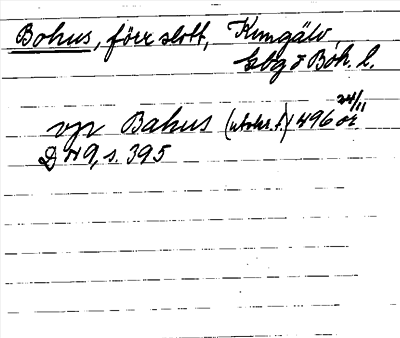 Bohus, förr slott, Kungälv
kbg o Boh. l.
vpr Bahus (utskr. f.) 1496 24/11 or.
D N 9, s. 395